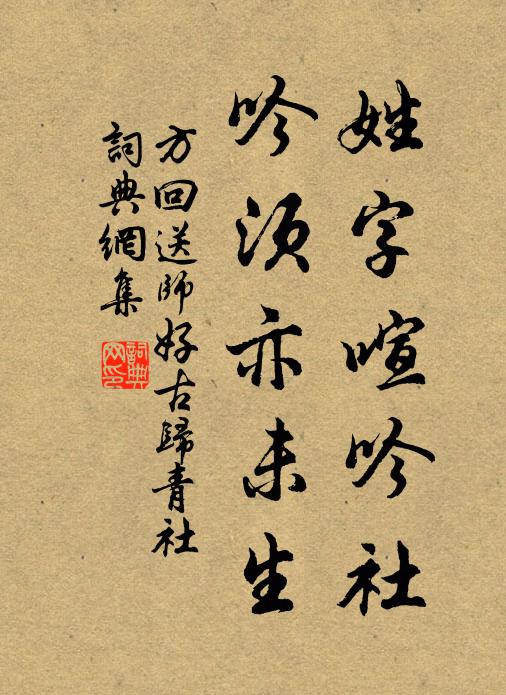 姓字喧吟社
吟須亦未生
方回送師好古歸青社
詞典網集
詞典网印